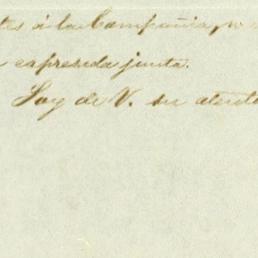 tes á la Compañia, y a
espresada junta.
Soy de V. su atento